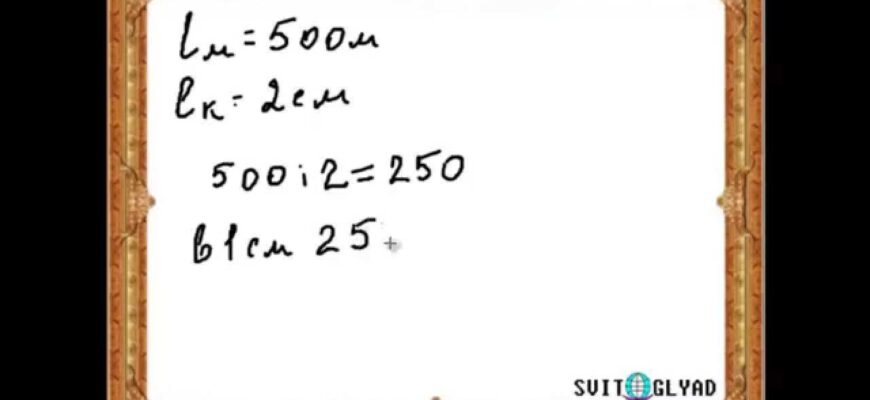 lм = 500м
lк = 2см
500 : 2 = 250
в 1см 25
SVITOGLYAD